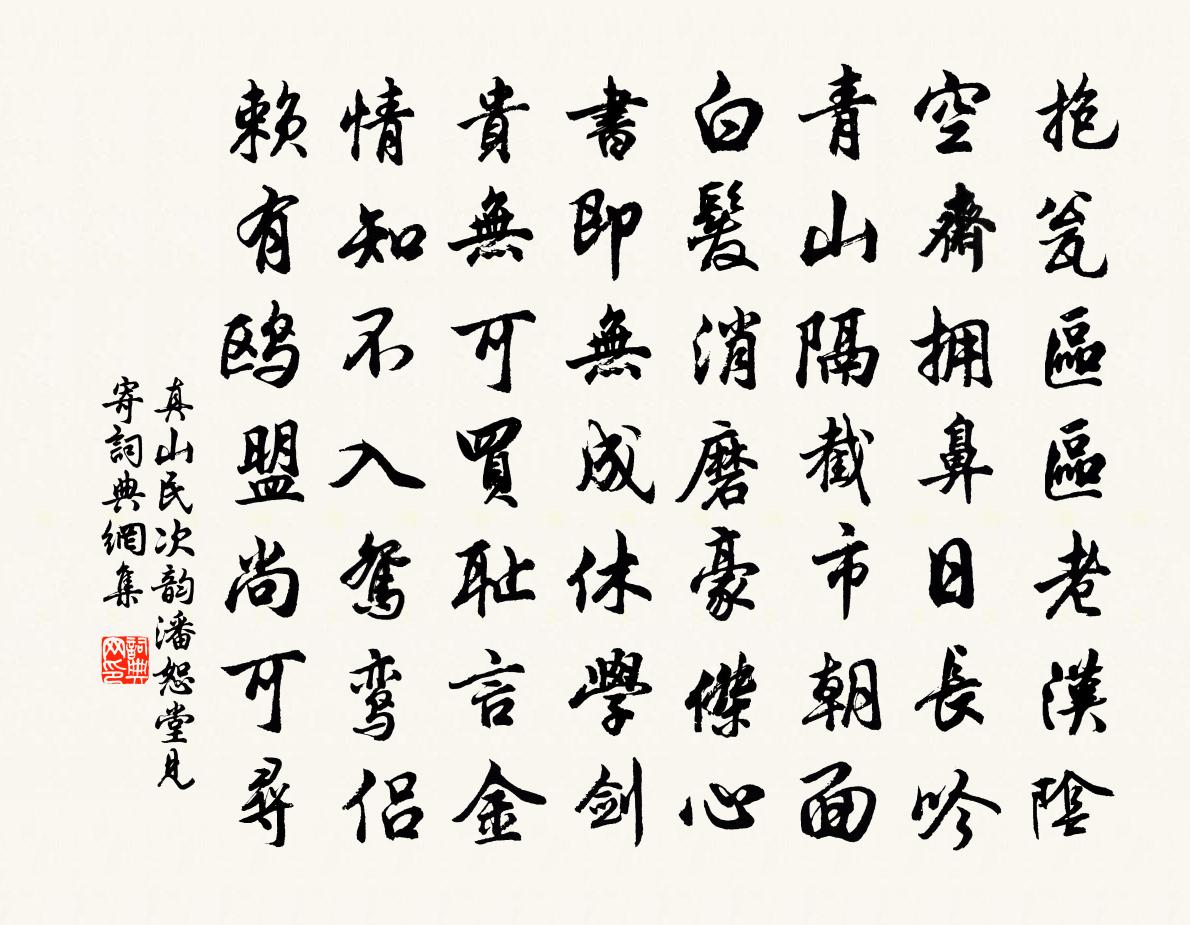 抱瓮區區老漢陰
空齋拥鼻日長吟
青山隔截市朝面
白髮消磨豪傑心
書即無成休學劍
貴無可買耻言金
情知不入鴛鸾侣
赖有鸥盟尚可尋
真山民次韵潘恕堂見
寄詞典網集
詞典
网印